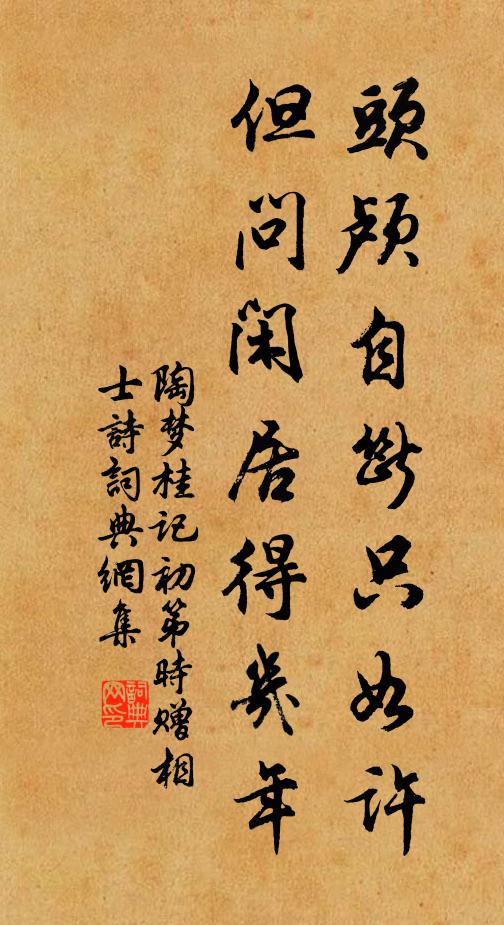 頭顱自斷只如許
但問閑居得幾年
陶梦桂記初第時赠相
士詩詞典網集
詞典网印